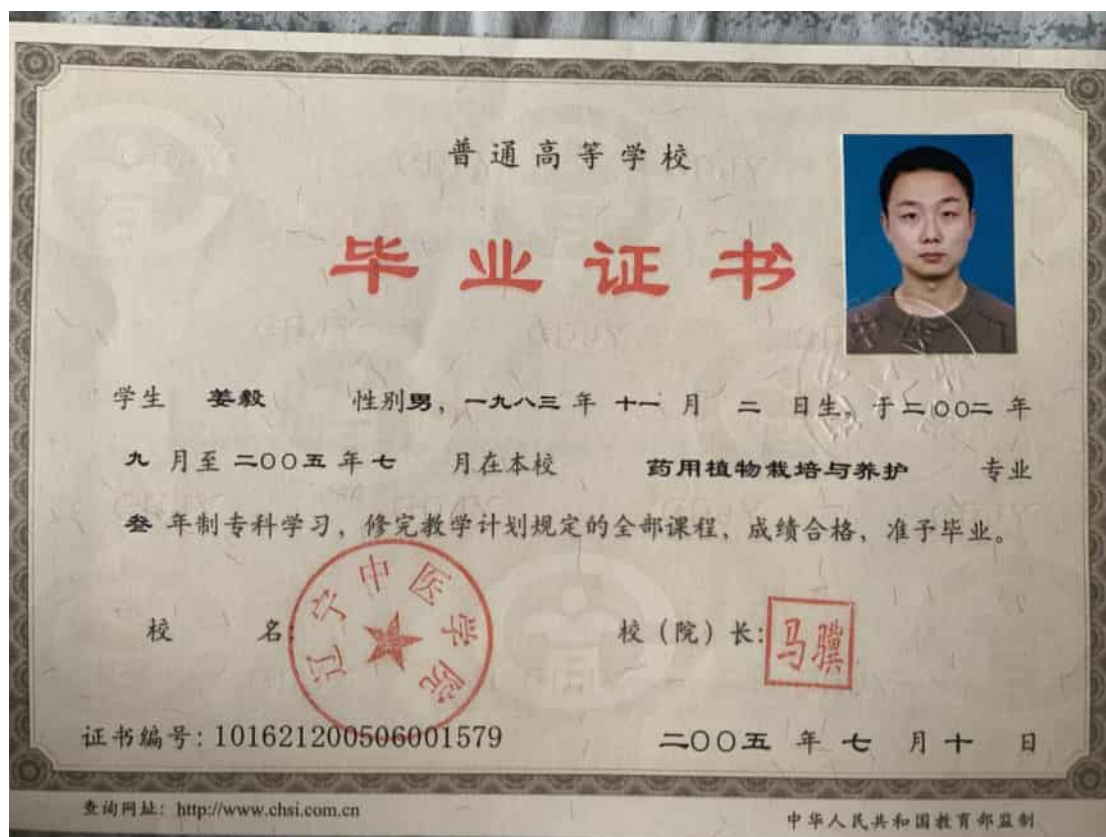 普通高等学校
毕业证书
学生 姜毅 性别男，一九八三年 十一 月 二 日生，于二〇〇二年
九 月至 二〇〇五 年 七 月在本校 药用植物栽培与养护 专业
叁 年制专科学习，修完教学计划规定的全部课程，成绩合格，准予毕业。
校 名：
辽宁中医学院
校（院）长：
马骥
证书编号：101621200506001579
二〇〇五 年 七 月 十 日
查询网址：http://www.chsi.com.cn
中华人民共和国教育部监制